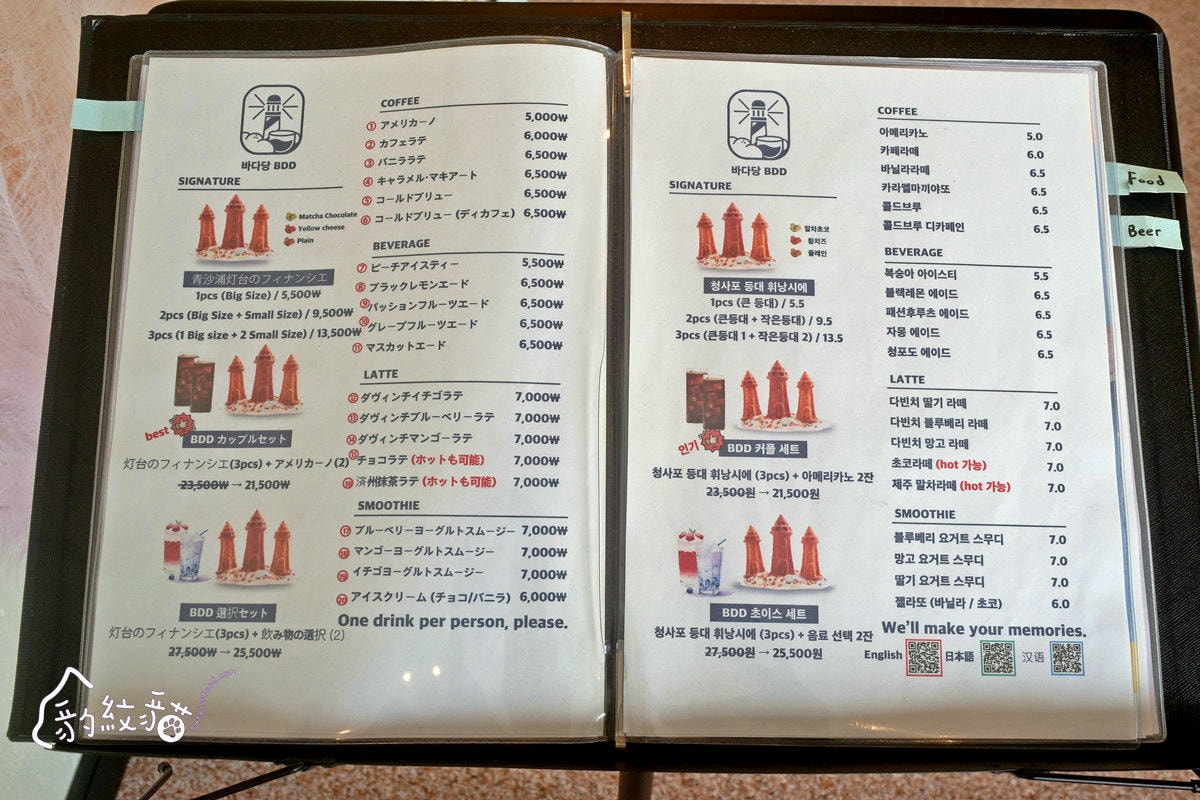 바다당 BDD
SIGNATURE
Matcha Chocolate
Yellow cheese
Plain
青沙浦灯台のフィナンシエ
1pcs (Big Size) / 5,500₩
2pcs (Big Size + Small Size) / 9,500₩
3pcs (1 Big size + 2 Small Size) / 13,500₩
best
BDD カップルセット
灯台のフィナンシエ(3pcs) + アメリカーノ(2)
23,500₩ → 21,500₩
BDD 選択セット
灯台のフィナンシエ(3pcs) + 飲み物の選択 (2)
27,500₩ → 25,500₩
COFFEE
① アメリカーノ 5,000₩
② カフェラテ 6,000₩
③ バニララテ 6,500₩
④ キャラメル・マキアート 6,500₩
⑤ コールドブリュー 6,500₩
⑥ コールドブリュー (ディカフェ) 6,500₩
BEVERAGE
⑦ ピーチアイスティー 5,500₩
⑧ ブラックレモンエード 6,500₩
⑨ パッションフルーツエード 6,500₩
⑩ グレープフルーツエード 6,500₩
⑪ マスカットエード 6,500₩
LATTE
⑫ ダヴィンチイチゴラテ 7,000₩
⑬ ダヴィンチブルーベリーラテ 7,000₩
⑭ ダヴィンチマンゴーラテ 7,000₩
⑮ チョコラテ (ホットも可能) 7,000₩
⑯ 済州抹茶ラテ (ホットも可能) 7,000₩
SMOOTHIE
⑰ ブルーベリーヨーグルトスムージー 7,000₩
⑱ マンゴーヨーグルトスムージー 7,000₩
⑲ イチゴヨーグルトスムージー 7,000₩
⑳ アイスクリーム (チョコ/バニラ) 6,000₩
One drink per person, please.
바다당 BDD
SIGNATURE
말차초코
황치즈
플레인
청사포 등대 휘낭시에
1pcs (큰 등대) / 5.5
2pcs (큰등대 + 작은등대) / 9.5
3pcs (큰등대 1 + 작은등대 2) / 13.5
인기
BDD 커플 세트
청사포 등대 휘낭시에 (3pcs) + 아메리카노 2잔
23,500원 → 21,500원
BDD 초이스 세트
청사포 등대 휘낭시에 (3pcs) + 음료 선택 2잔
27,500원 → 25,500원
COFFEE
아메리카노 5.0
카페라떼 6.0
바닐라라떼 6.5
카라멜마끼야또 6.5
콜드브루 6.5
콜드브루 디카페인 6.5
BEVERAGE
복숭아 아이스티 5.5
블랙레몬 에이드 6.5
패션후루츠 에이드 6.5
자몽 에이드 6.5
청포도 에이드 6.5
LATTE
다빈치 딸기 라떼 7.0
다빈치 블루베리 라떼 7.0
다빈치 망고 라떼 7.0
초코라떼 (hot 가능) 7.0
제주 말차라떼 (hot 가능) 7.0
SMOOTHIE
블루베리 요거트 스무디 7.0
망고 요거트 스무디 7.0
딸기 요거트 스무디 7.0
젤라또 (바닐라 / 초코) 6.0
We'll make your memories.
English 日本語 汉语
Food
Beer
豹紋貓